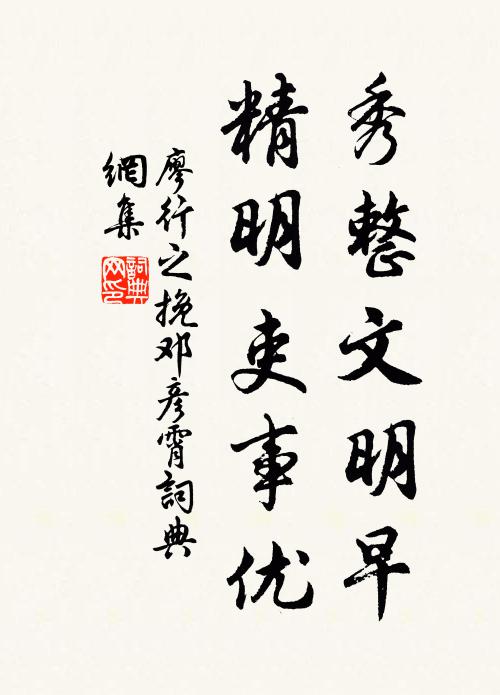 秀整文明早
精明吏事优
廖行之挽邓彦霄詞典
網集
詞典網印